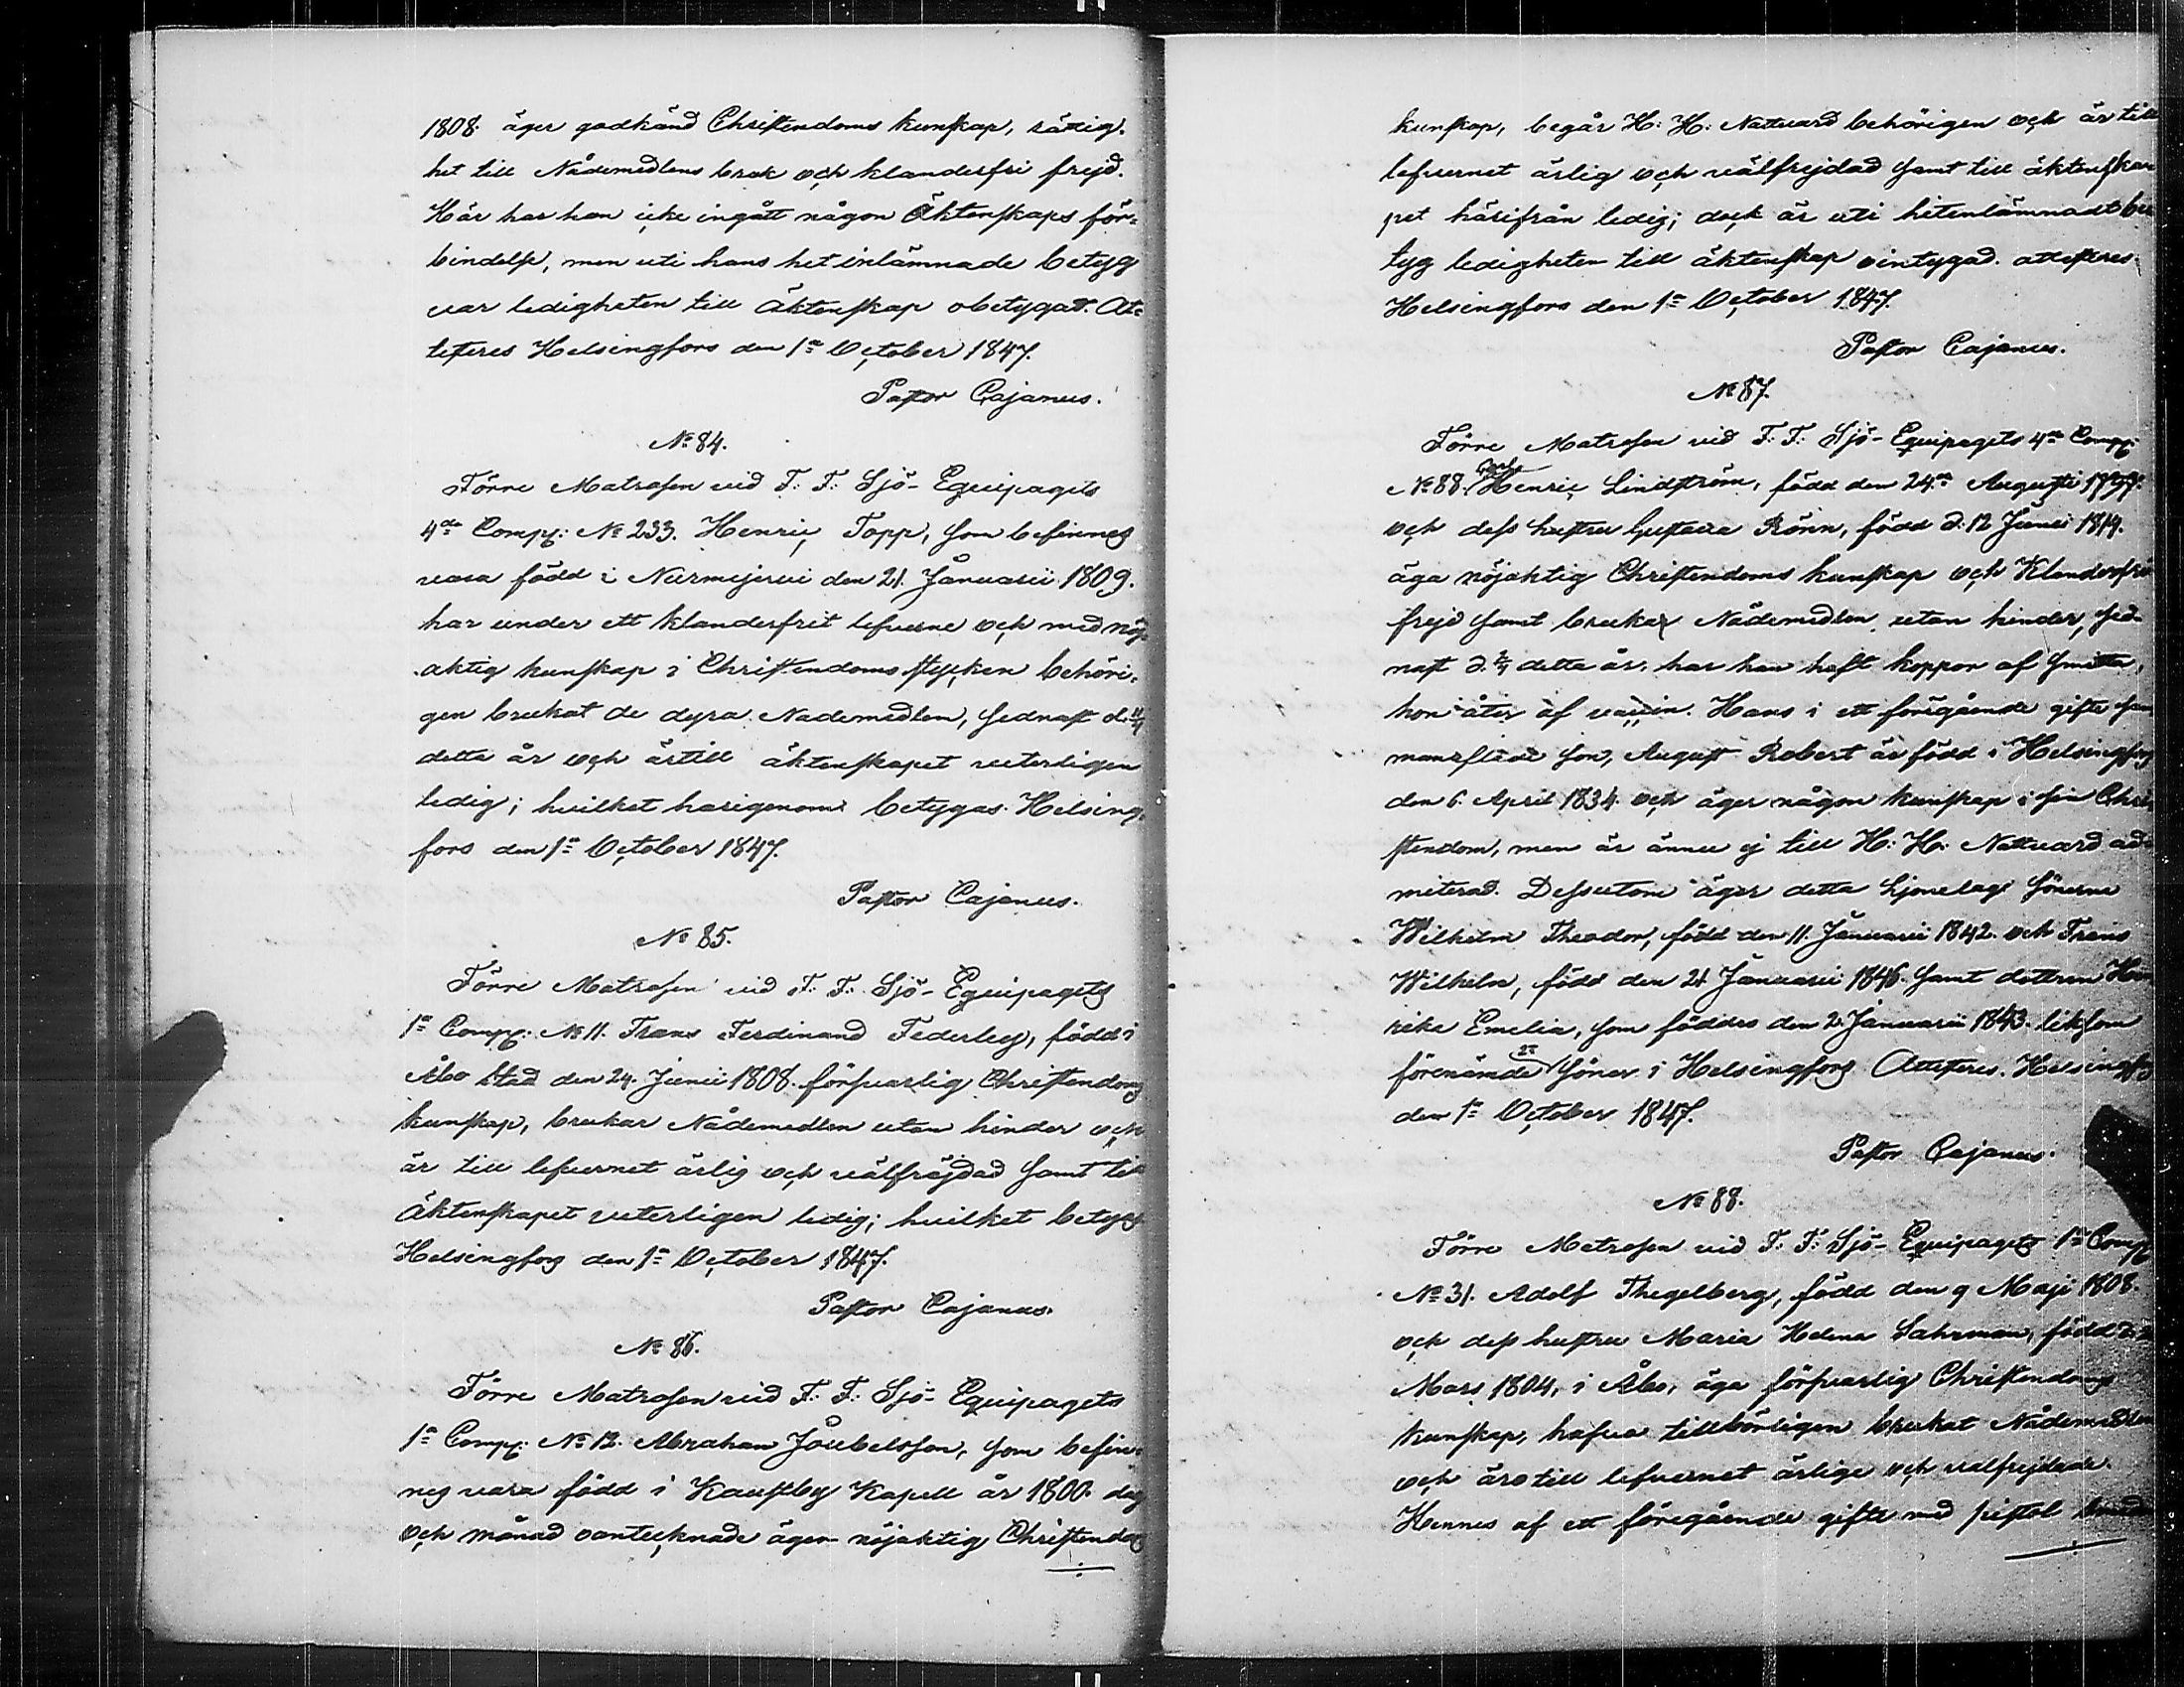 1808. äger godkänd Christendoms kunskap, rättig-
het till Nådemedlens bruk och klanderfri frejd.
Här har han icke ingått någon Äktenskaps för-
bindelse, men uti hans hit inlämnade betyg
var ledigheten till äktenskap obetygad. At-
testeres Helsingfors den 1ª October 1847.
Pastor Cajanus.
№ 84.
Förre Matrosen vid F: F: Sjö-Equipagets
4de Comp: № 233. Henric Topp, som befinnes
vara född i Nurmijervi den 21. Januarii 1809.
har under ett klanderfrit lefverne och med nöj-
aktig kunskap i Christendoms stycken behöri-
gen brukat de dyra Nademedlen, sednast d.
detta år och är till äktenskapet veterligen
ledig; hvilket harigenom betygas. Helsing-
fors den 1ª October 1847.
Pastor Cajanus.
№ 85.
Förre Matrosen vid F: F: Sjö-Equipagets
1ª Comp: № 11. Frans Ferdinand Federley, född i
Åbo stad den 24. Junii 1808. försvarlig Christendoms
kunskap, brukar Nådemedlen utan hinder och
är till lefvernet ärlig och välfräjdad samt till
Äktenskapet veterligen ledig; hvilket betygas
Helsingfors den 1ª October 1847.
Pastor Cajanus.
№ 86.
Förre Matrosen vid F: F: Sjö-Equipagets
1ª Comp: № 12. Abraham Joubelsson, som befin-
nes vara född i Kaustby Kapell år 1800. dag
och månad oantecknade äger nöjaktig Christendoms
kunskap, begår H: H: Nattvard behörigen och är till
lefvernet ärlig och välfrejdad samt till äktenska-
pet härifrån ledig; dock är uti hitenlämnadt be-
tyg ledigheten till äktenskap ointygad. attesteres
Helsingfors den 1ª October 1847.
Pastor Cajanus.
№ 87.
Förre Matrosen vid F: F: Sjö-Equipagets 4de Comp:
№ 88. Carl Henric Lindström, född den 24de Augusti
och dess hustru Gustava Rönn, född d. 12 Junii 1814.
äga nöjaktig Christendoms kunskap och Klanderfri
frejd samt brukar Nådemedlen utan hinder, sed-
nast d. detta år. har han haft koppor af smitta,
hon åter af vaccin. Hans i ett föregående gifte sam-
manaflade son, August Robert är född i Helsingfors
den 6. April 1834. och äger någon kunskap i sin Chri-
stendom, men är ännu ej till H: H: Nattvard ad-
miterad. Dessutom äger detta hjonelag Sönerne
Wilhelm Theodor, född den 11. Januarii 1842. och Frans
Wilhelm, född den 21. Januarii 1846. samt dottren Hen-
rika Emelia, som föddes den 2. Januarii 1843. liksom
förenämde söner i Helsingfors. Attesteres. Helsingfors
den 1ª October 1847.
Pastor Cajanus.
№ 88.
Förre Matrosen vid F: F: Sjö-Equipagets 1ª Comp
№ 31. Adolf Thegelberg, född den 9 Maji 1808.
och dess hustru Maria Helena Sahrman, född d.
Mars 1804, i Åbo, äga försvarlig Christendoms
kunskap, hafva tillbörligen brukat Nådemedlen
och äro till lefvernet ärlige och valfrejdade.
Hennes af ett föregående gifte med pistol